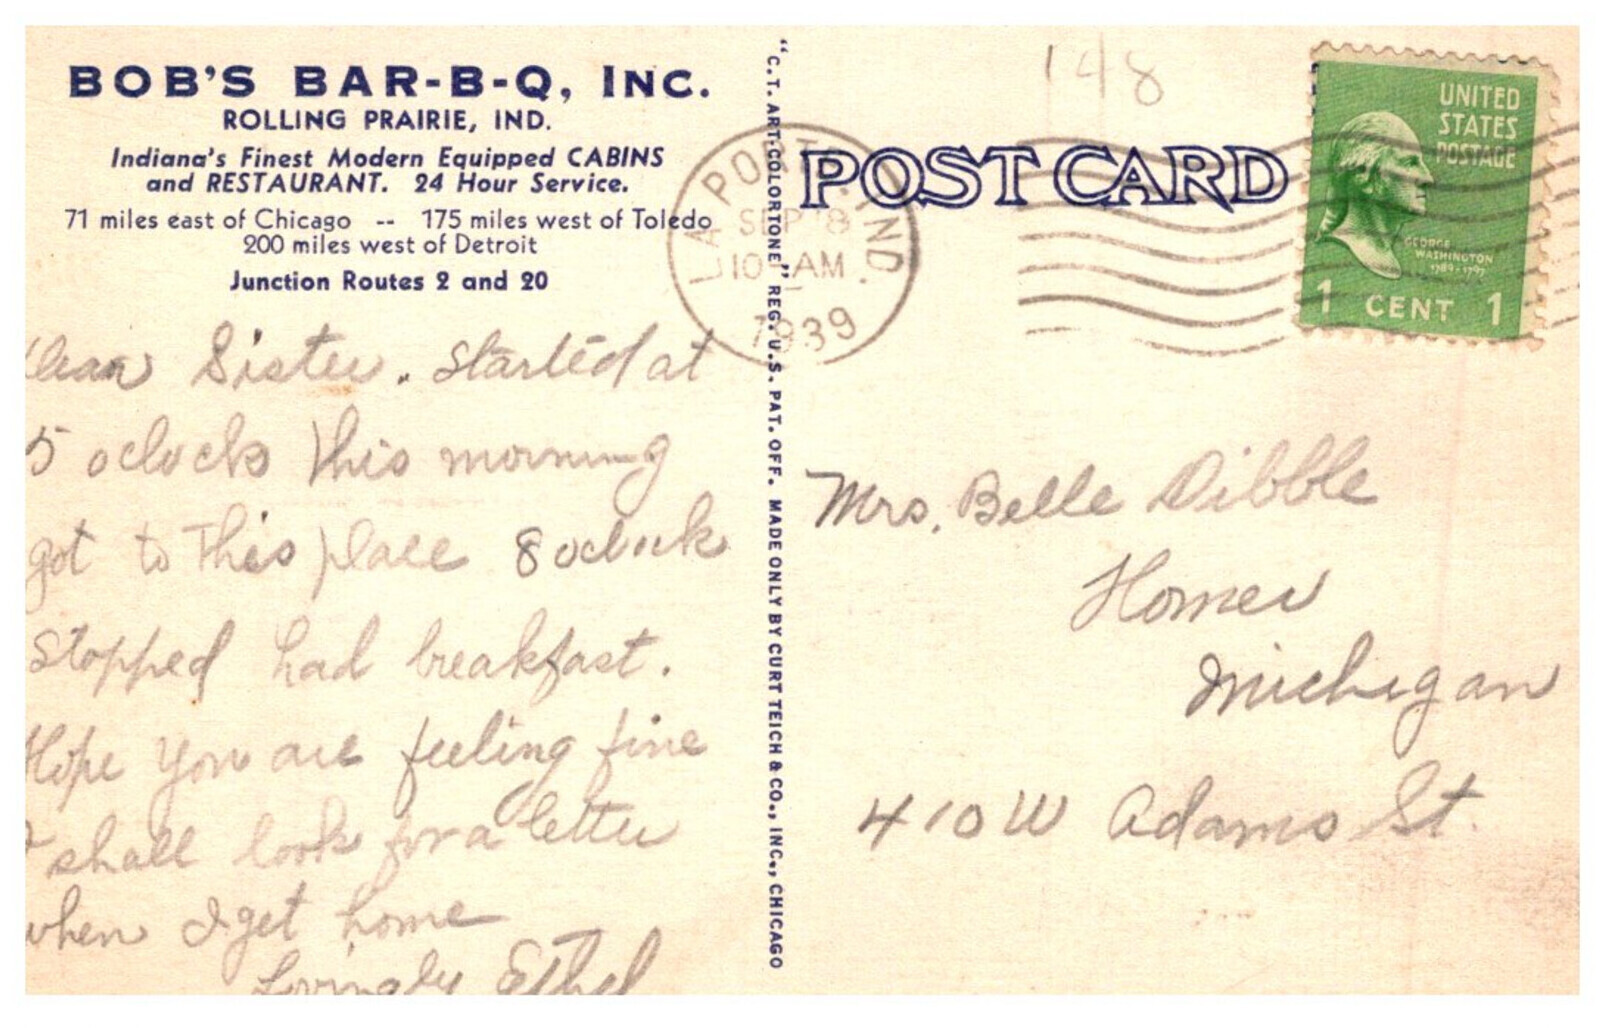 BOB'S BAR-B-Q, INC.
ROLLING PRAIRIE, IND.
Indiana's Finest Modern Equipped CABINS
and RESTAURANT. 24 Hour Service.
71 miles east of Chicago -- 175 miles west of Toledo
200 miles west of Detroit
Junction Routes 2 and 20
Dear Sister. Started at
5 oclock this morning
got to This place 8 oclock
Stopped had breakfast.
Hope you are feeling fine
I shall look for a letter
when I get home
Lovingly Ethel
"C.T. ART-COLORTONE" REG. U.S. PAT. OFF. MADE ONLY BY CURT TEICH & CO., INC., CHICAGO
148
POST CARD
LA PORTE, IND.
SEP 8
10 AM
1939
UNITED
STATES
POSTAGE
GEORGE
WASHINGTON
1789-1797
1 CENT 1
Mrs. Belle Dibble
Homer
Michigan
410 W Adams St.